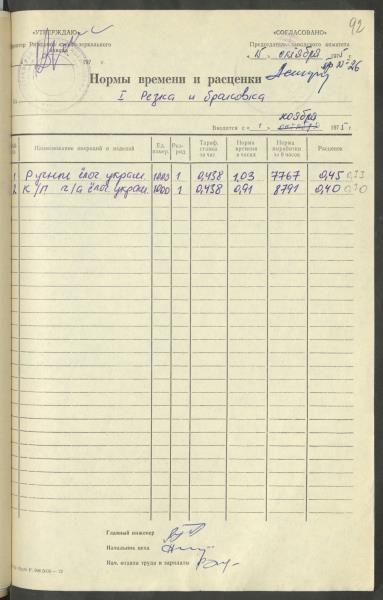 92
«УТВЕРЖДАЮ» «СОГЛАСОВАНО»
Председатель заводского комитета
197 г. «15» октября 1975 г.
пр № 26
Нормы времени и расценки
I Резка и браковка
ноября
Вводятся с «1» октября 1975 г.
Наименование операций и изделий Ед. измер. Раз-ряд Тариф. ставка за час Норма времени в часах Норма выработки за 8 часов Расценок
1 Ручные ёлоч украш. 1000 1 0,438 1,03 7767 0,45 0,33
2 К/П п/а ёлоч украш. 1000 1 0,438 0,91 8791 0,40 0,30
Главный инженер
Начальник цеха
Нач. отдела труда и зарплаты